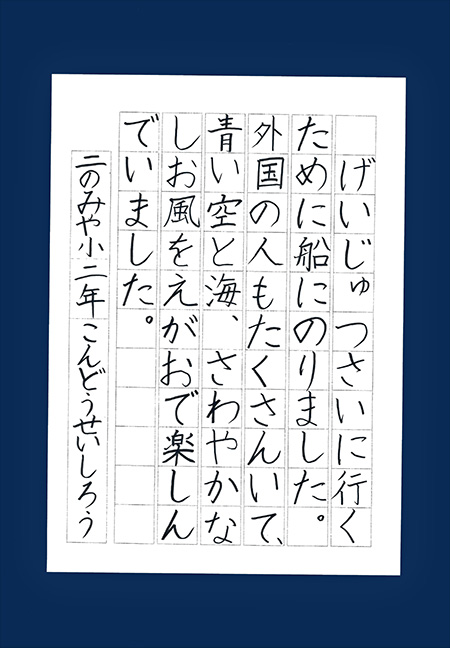 げいじゅつさいに行く
ために船にのりました。
外国の人もたくさんいて、
青い空と海、さわやかな
しお風をえがおで楽しん
でいました。
二のみや小 二年 こんどうせいしろう